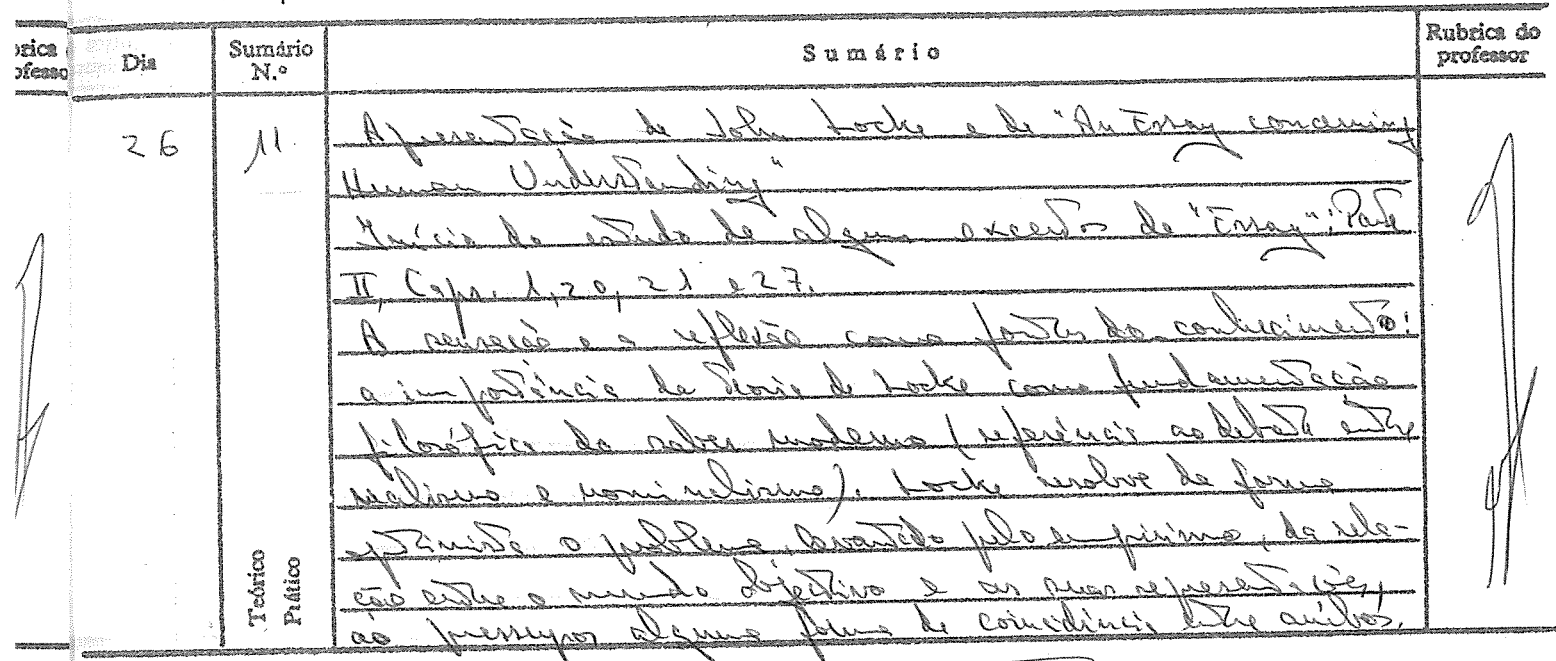 Dia
Sumário N.º
Sumário
Rubrica do professor
26
11.
Apresentação de John Locke e de "An Essay concerning
Human Understanding"
Início do estudo de alguns excertos do "Essay": Parte
II, Caps. 1, 20, 21 e 27.
A sensação e a reflexão como fontes do conhecimento:
a importância da teoria de Locke como fundamentação
filosófica do saber moderno (referência ao debate entre
realismo e nominalismo). Locke resolve de forma
optimista o problema, levantado pelo empirismo, da rela-
ção entre o mundo objectivo e as suas representações,
ao pressupor alguma forma de coincidência entre ambos.
Teórico
Prático